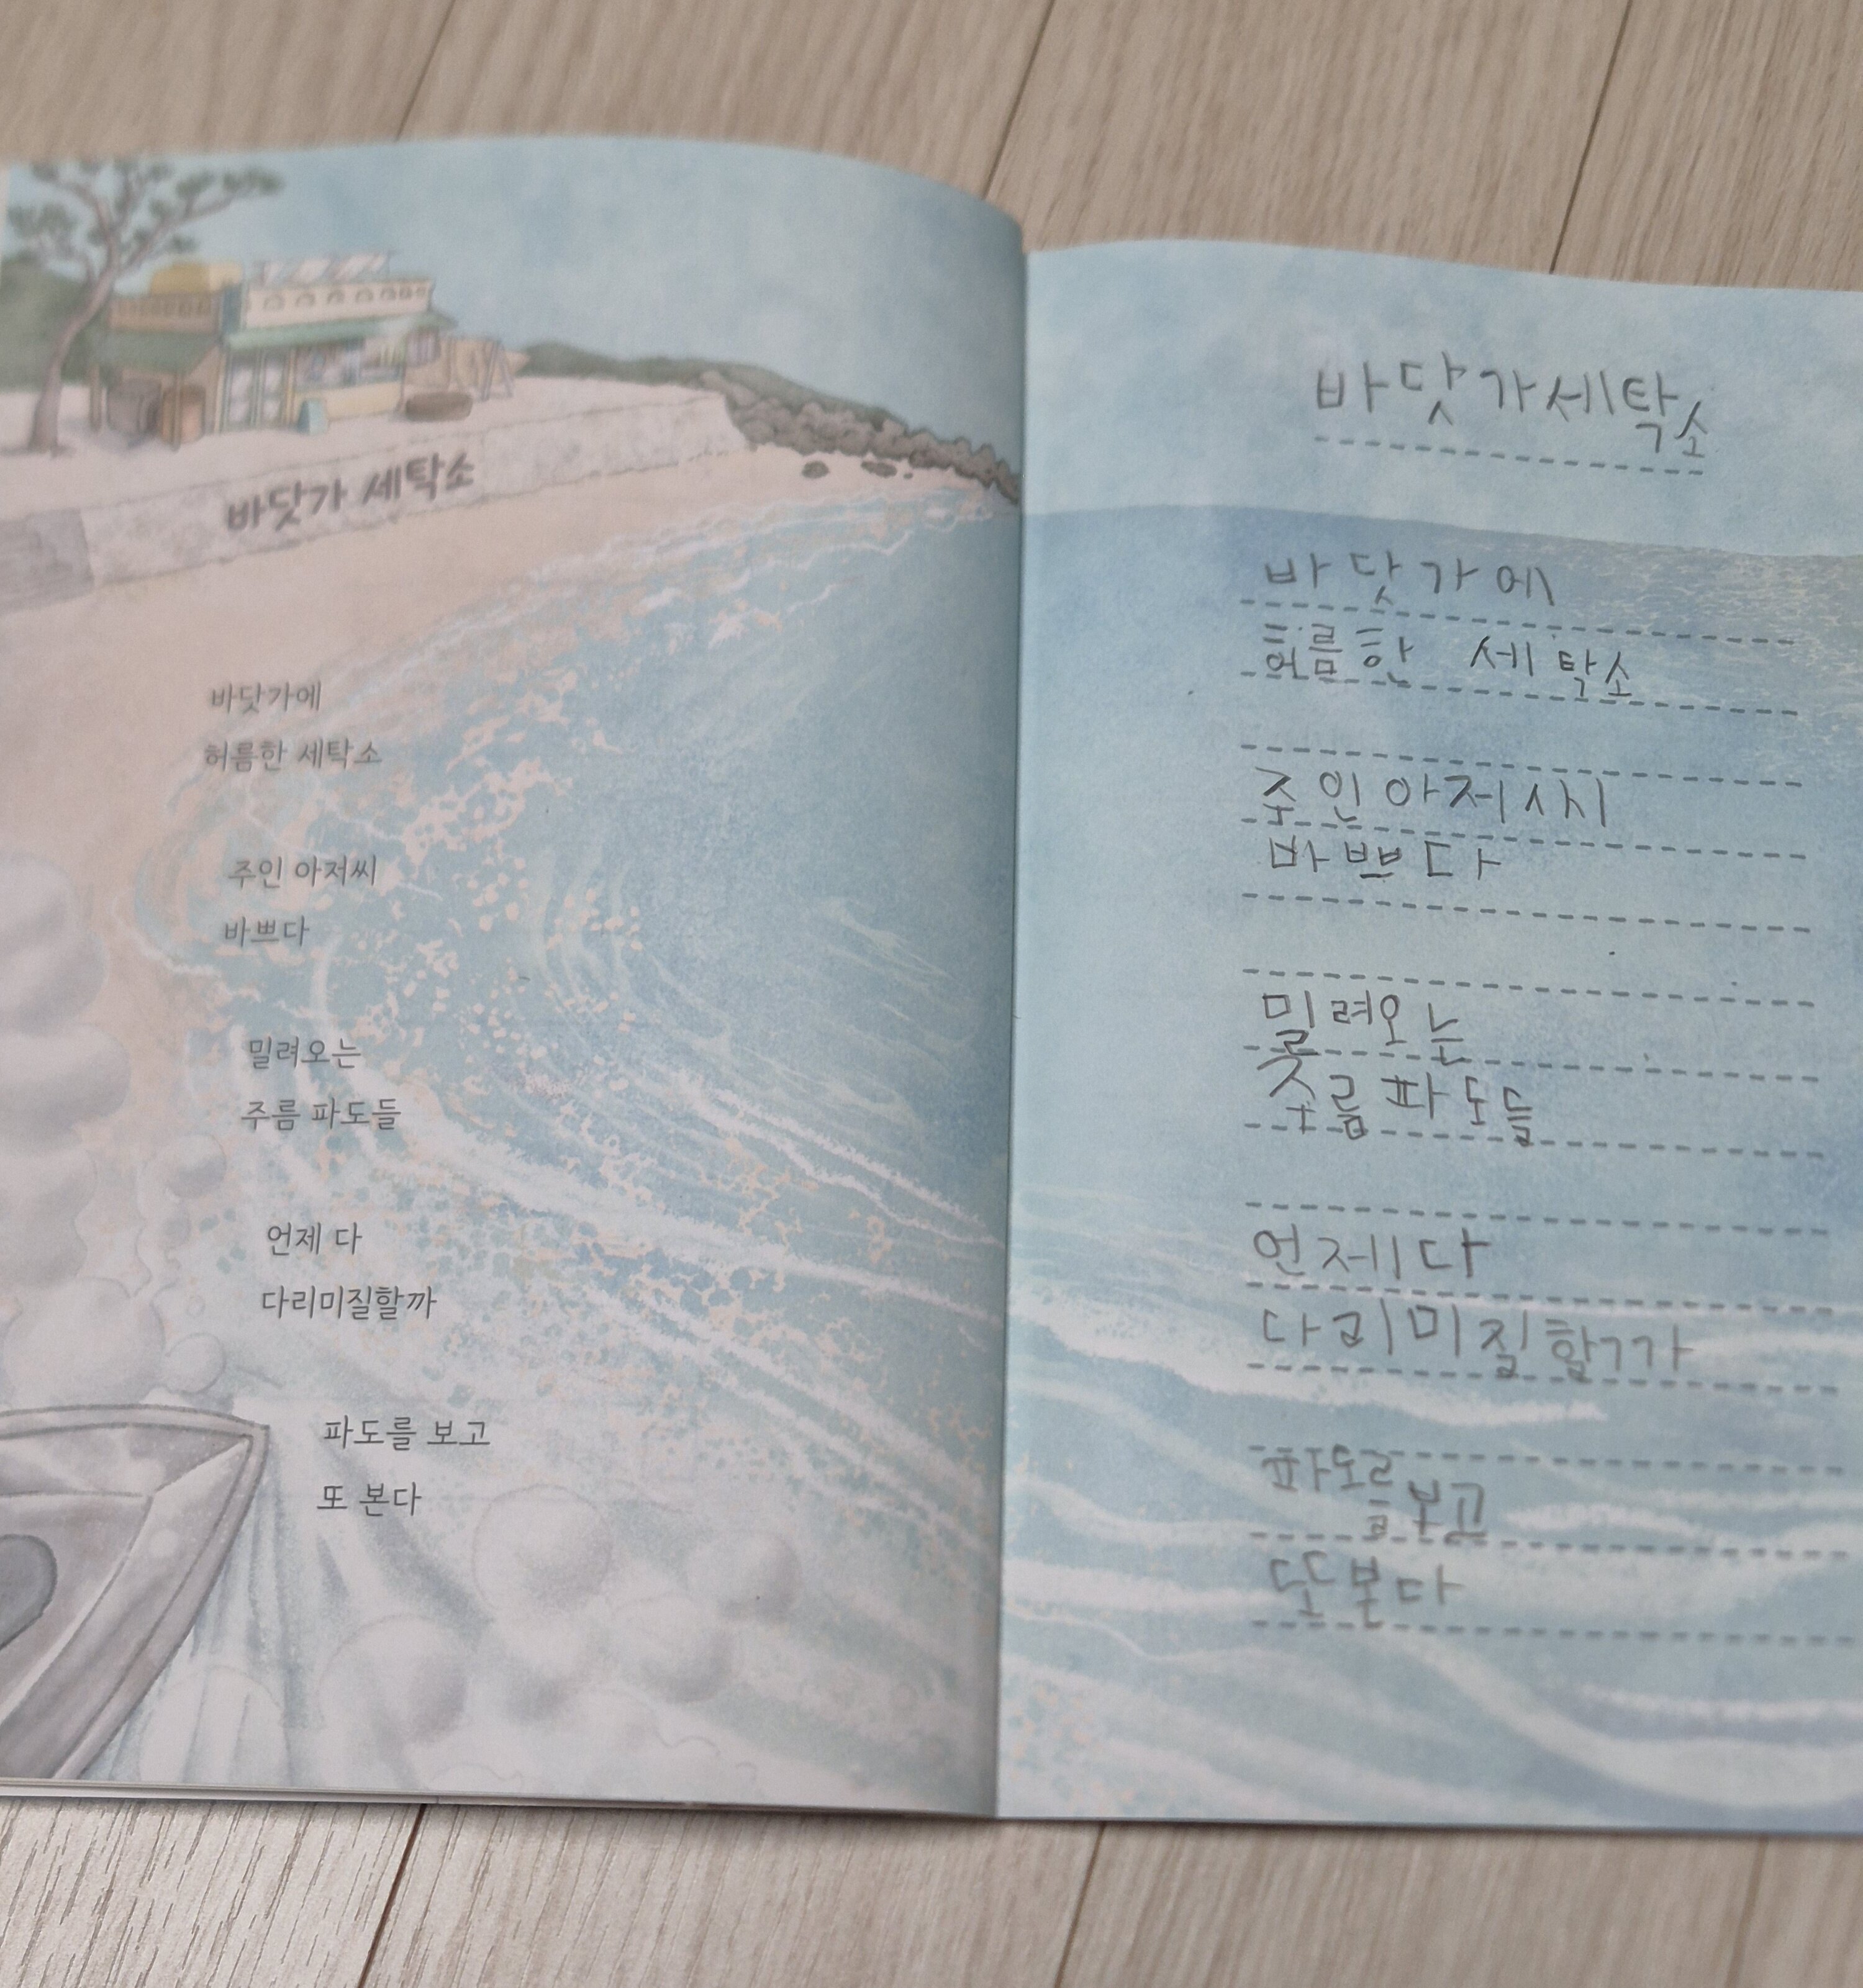 바닷가 세탁소
바닷가에
허름한 세탁소
주인 아저씨
바쁘다
밀려오는
주름 파도들
언제 다
다리미질할까
파도를 보고
또 본다
바닷가세탁소
바닷가에
허름한 세탁소
주인아저씨
바쁘다
밀려오는
주름파도들
언제다
다리미질할까
파도를보고
또본다